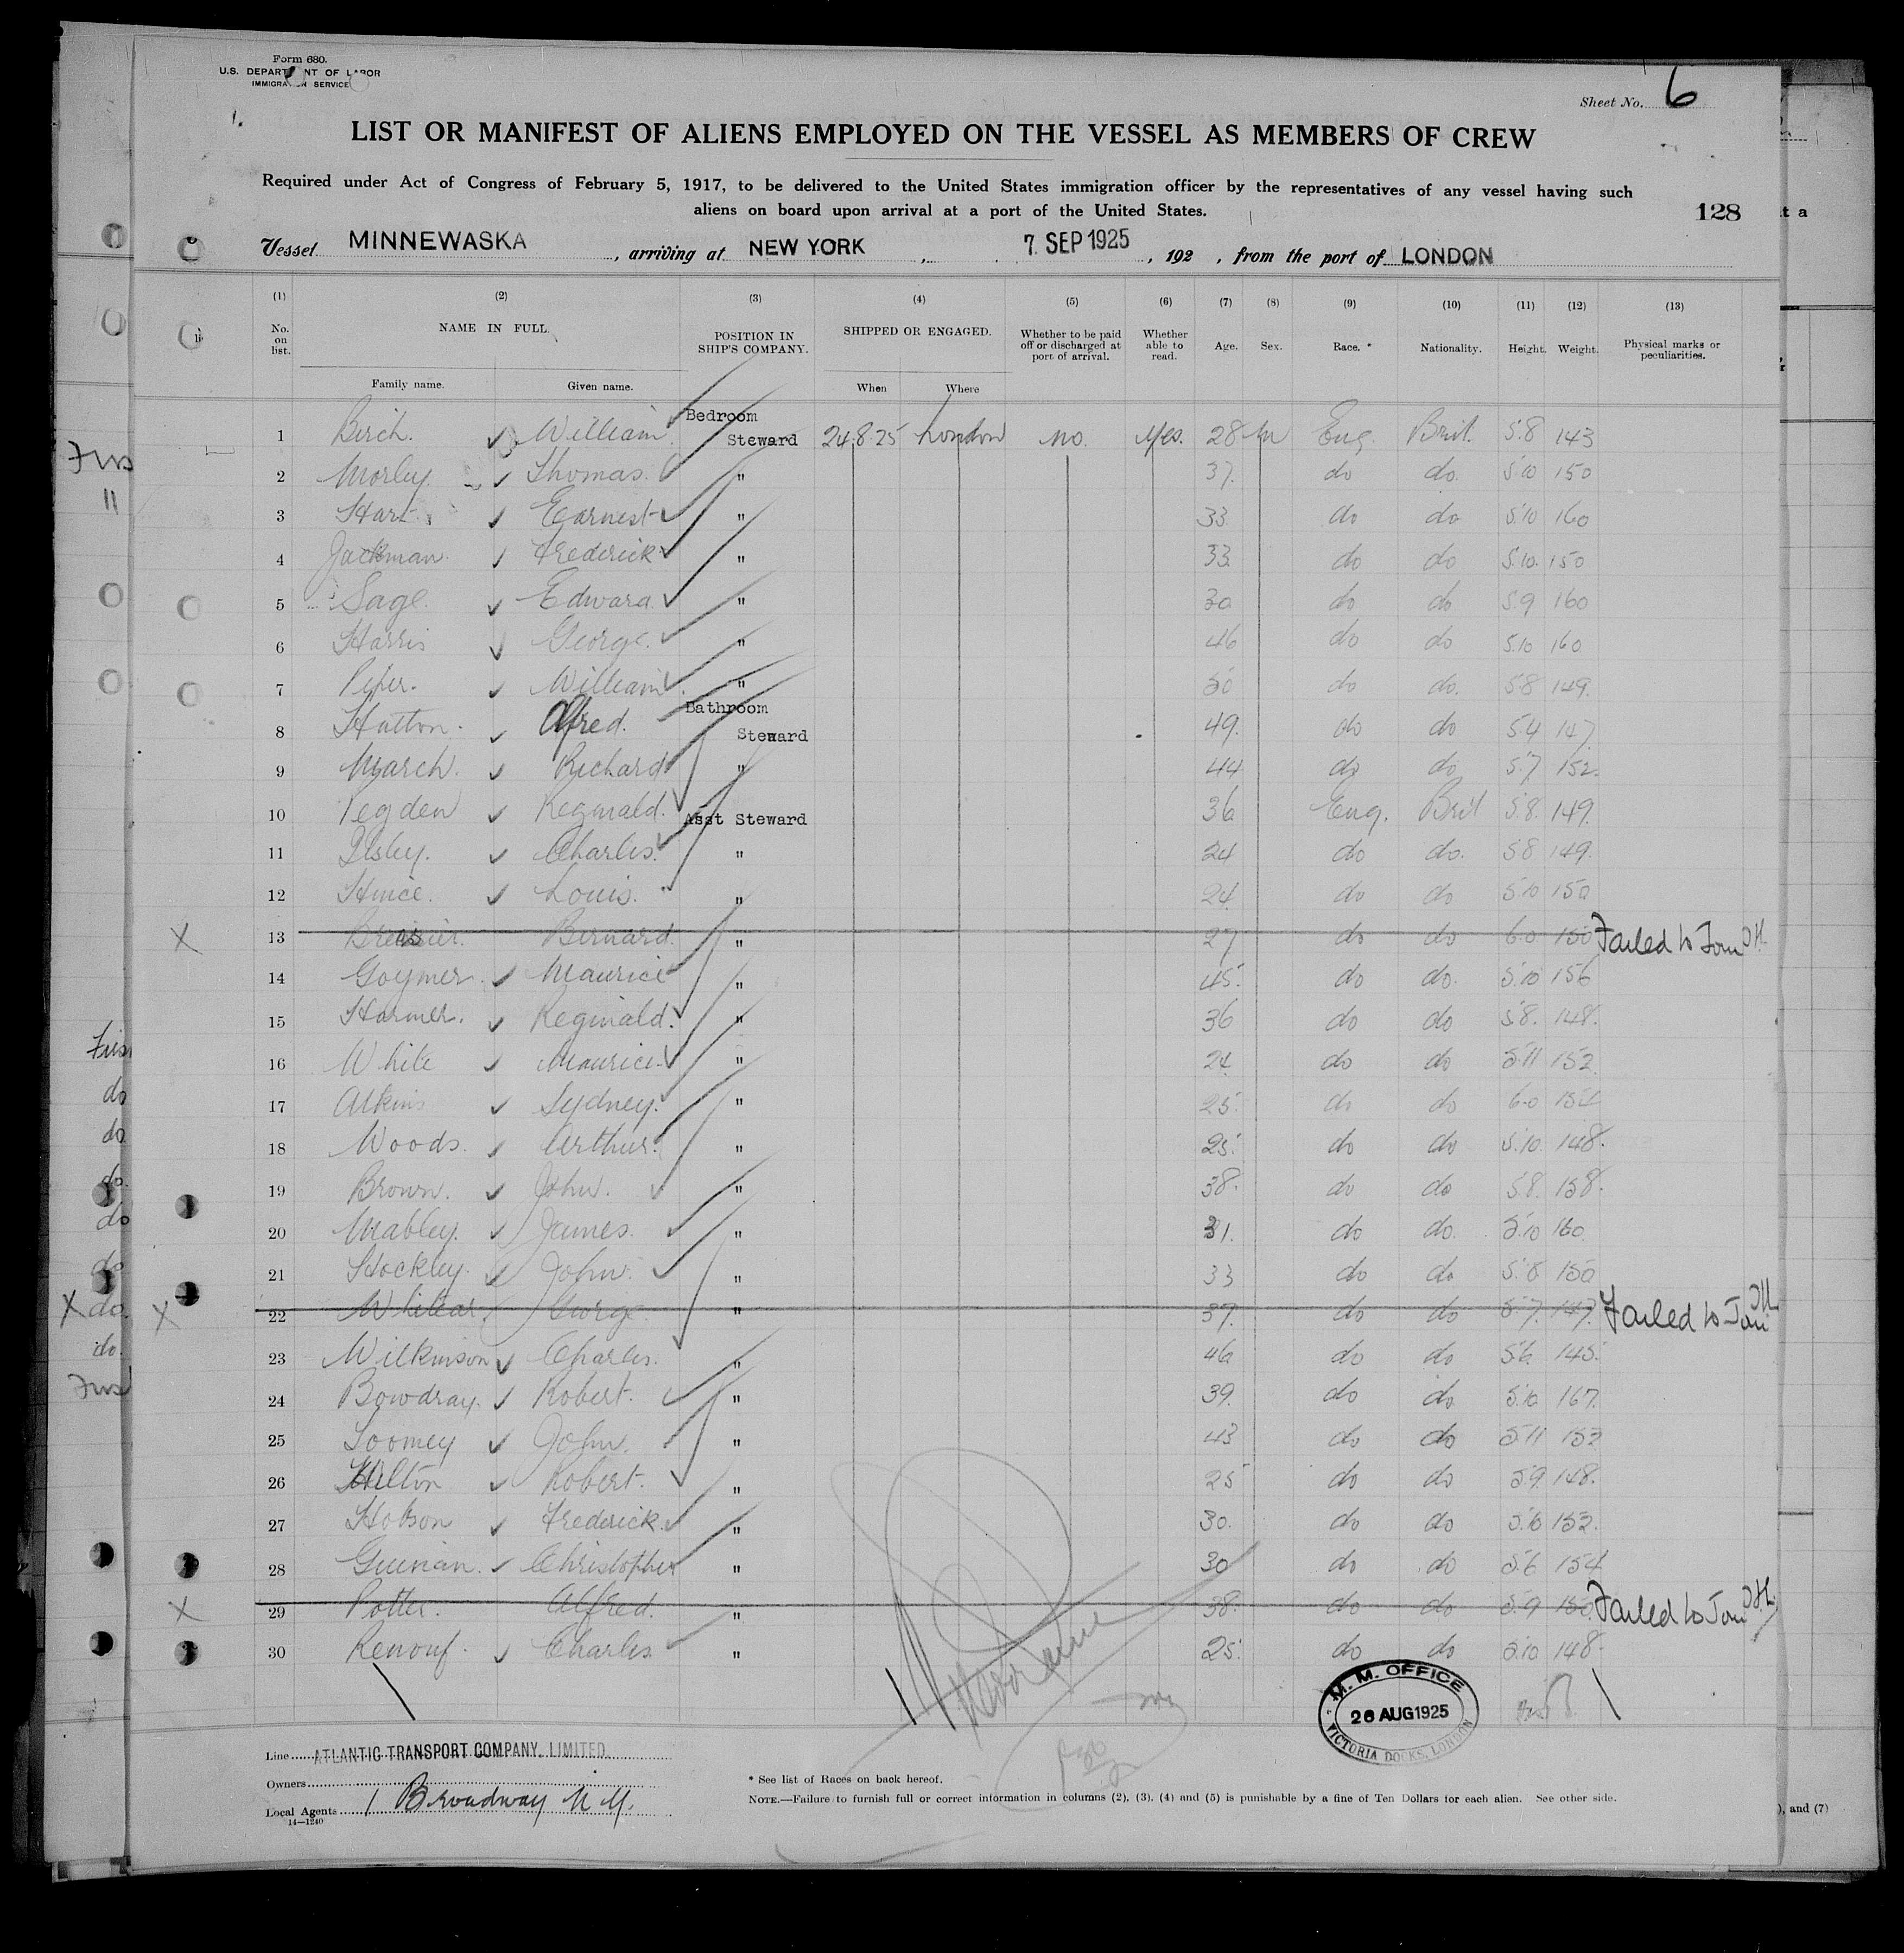 Form 680.
U.S. DEPARTMENT OF LABOR
IMMIGRATION SERVICE
Sheet No. 6
LIST OR MANIFEST OF ALIENS EMPLOYED ON THE VESSEL AS MEMBERS OF CREW
Required under Act of Congress of February 5, 1917, to be delivered to the United States immigration officer by the representatives of any vessel having such
aliens on board upon arrival at a port of the United States.
128
Vessel MINNEWASKA, arriving at NEW YORK, 7 SEP 1925, 192 , from the port of LONDON
(1) (2) (3) (4) (5) (6) (7) (8) (9) (10) (11) (12) (13)
No. on list. NAME IN FULL POSITION IN SHIP'S COMPANY. SHIPPED OR ENGAGED. Whether to be paid off or discharged at port of arrival. Whether able to read. Age. Sex. Race. * Nationality. Height. Weight. Physical marks or peculiarities.
Family name. Given name. When Where
1 Birch. William Bedroom Steward 24.8.25 London no. yes. 28 m Eng. Brit. 5.8 143
2 Morley. Thomas. " 37. do do. 5.10 150
3 Hart. Earnest " 33. do do 5.10 160
4 Jackman. Frederick " 33 do do 5.10. 150
5 Sage. Edward. " 30 do do 5.9 160
6 Harris George. " 46 do do 5.10 160
7 Piper. William " 50 do do. 5.8 149.
8 Hutton. Alfred. Bathroom Steward 49. do do 5.4 147.
9 March. Richard " 44 do do 5.7 152.
10 Tegden Reginald. Asst Steward 36 Eng. Brit 5.8. 149.
11 Ilsley. Charles. " 24 do do. 5.8 149.
12 Hince. Louis. " 24. do do 5.10 150
13 Bernard. " 27 do do 6.0 150 Failed to Join JH
14 Goymer. Maurice " 45. do do. 5.10 156
15 Harmer. Reginald. " 36 do do 5.8. 148.
16 White Maurice. " 24. do do 5.11 152
17 Atkins Sydney. " 25. do do 6.0
18 Woods. Arthur. " 25. do do 5.10. 148.
19 Brown. John. " 38. do do 5.8. 158.
20 Mabley. James. " 31. do do. 5.10 160.
21 Hockley. John. " 33 do do 5.8 150
22 Whitear. George. " 37. do do 5.7. 147. Failed to Join JH
23 Wilkinson Charles. " 46 do do 5.6. 145.
24 Bowdray. Robert. " 39. do do. 5.10. 167.
25 Toomey John. " 43 do do 5.11 153
26 Hilton Robert. " 25 do do 5.9. 148.
27 Hobson Frederick. " 30. do do 5.8 152.
28 Guinan. Christopher " 30 do do 5.6 154
29 Potter. Alfred. " 38. do do 5.9 150. Failed to Join JH
30 Renouf. Charles. " 25. do do 5.10 148.
M. M. OFFICE
26 AUG 1925
VICTORIA DOCKS, LONDON
Line ATLANTIC TRANSPORT COMPANY. LIMITED.
Owners
Local Agents 1 Broadway N.Y.
14—1240
* See list of Races on back hereof.
NOTE.—Failure to furnish full or correct information in columns (2), (3), (4) and (5) is punishable by a fine of Ten Dollars for each alien. See other side.
), and (7)